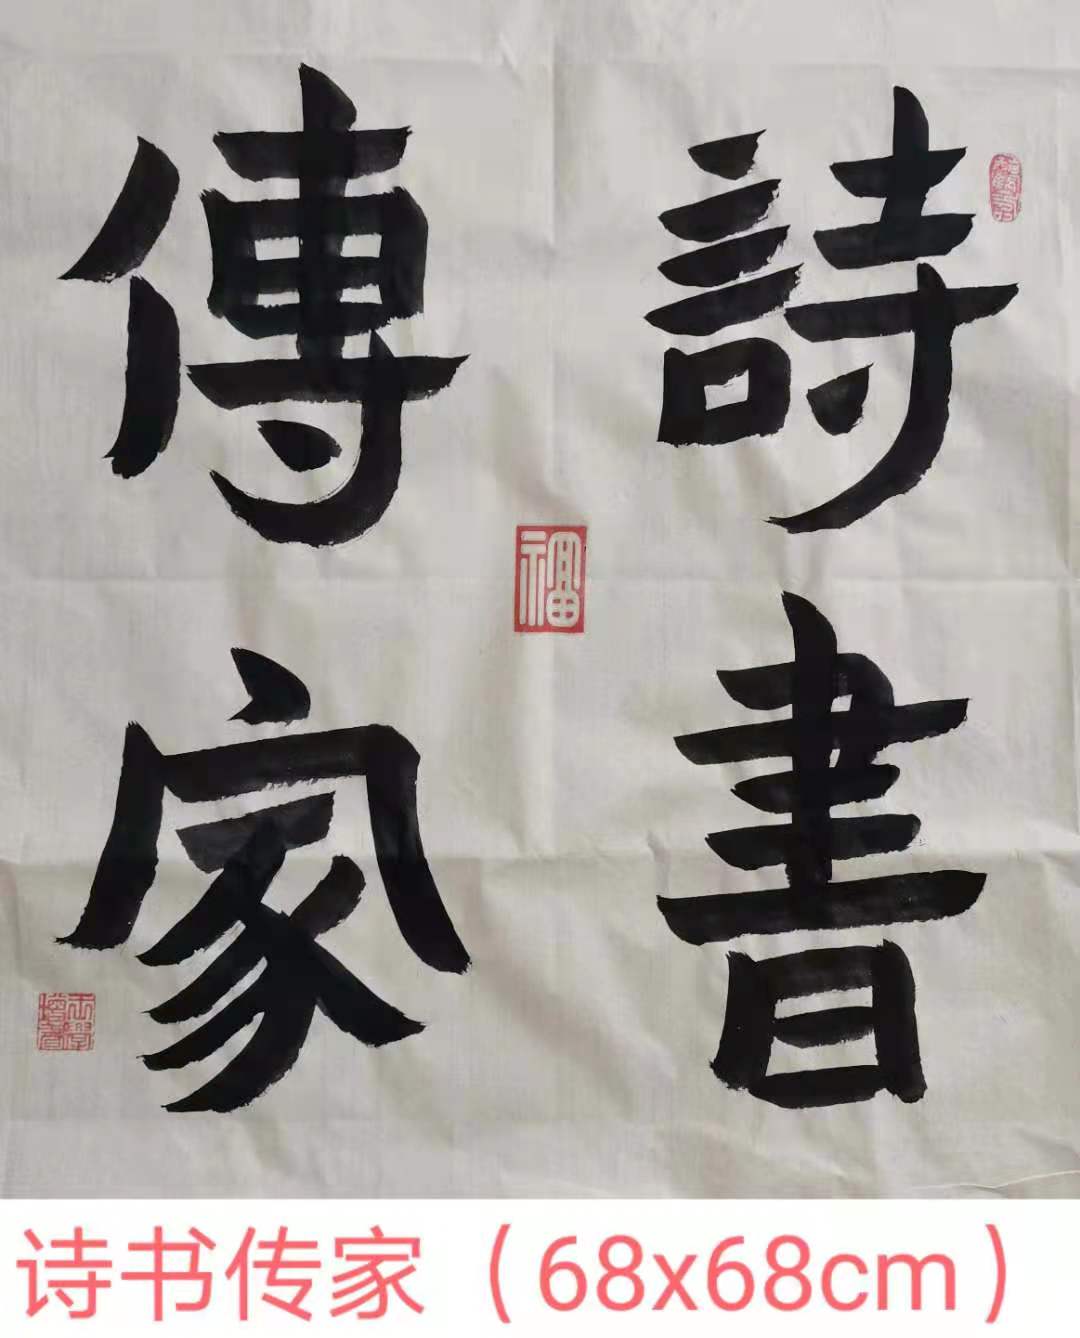 詩書
傳家
福
诗书传家（68x68cm）